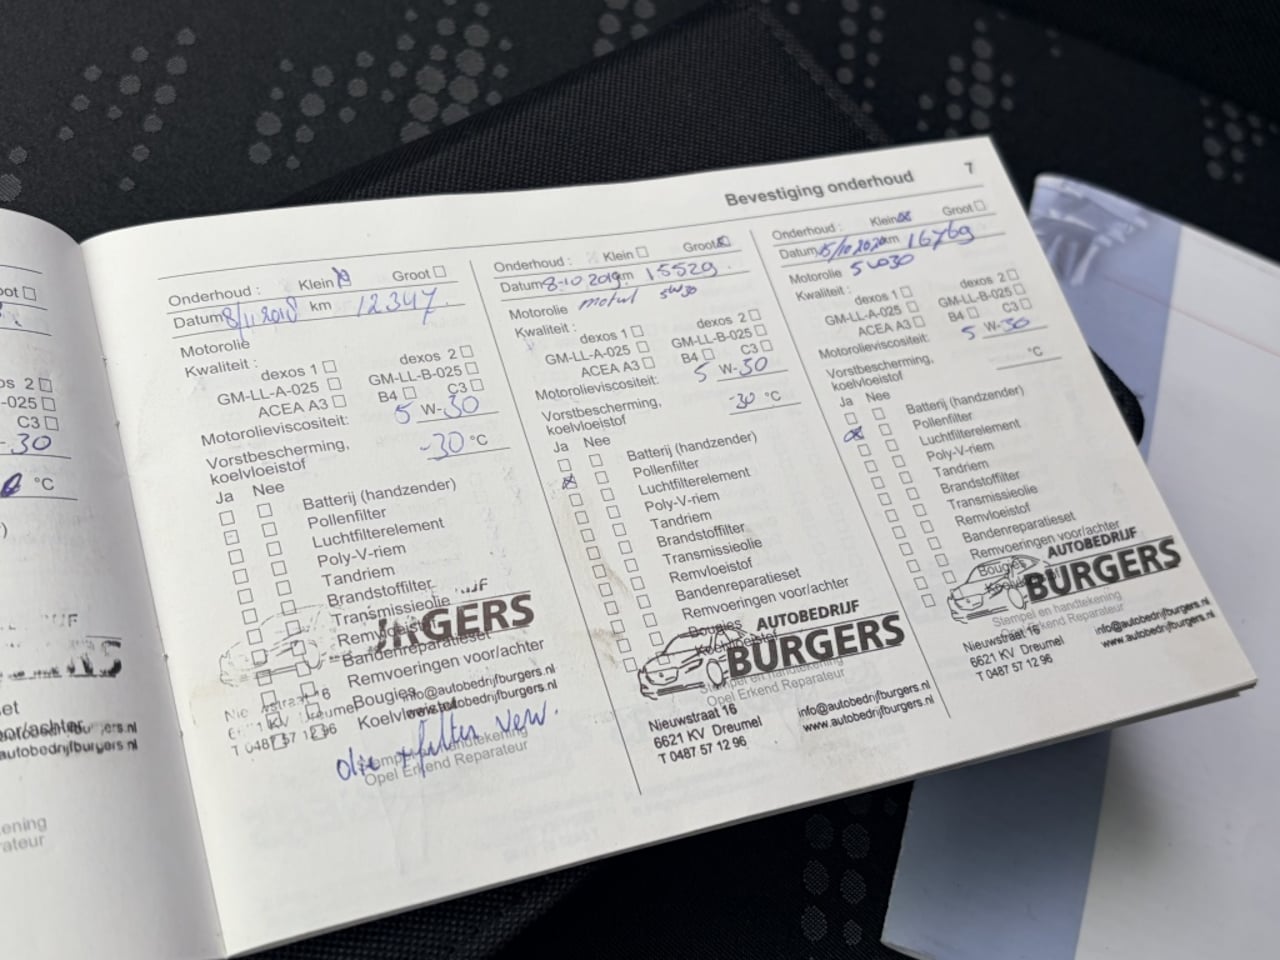 Bevestiging onderhoud
7
oot
os 2
-025
C3
-30
°C
)
set
oor/achter
autobedrijfburgers.nl
ening
rateur
Onderhoud : Klein Groot
Datum 8/11 2018 km 12347
Motorolie
Kwaliteit :
dexos 1 dexos 2
GM-LL-A-025 GM-LL-B-025
ACEA A3 B4 C3
Motorolieviscositeit: 5 W-30
Vorstbescherming,
koelvloeistof -30 °C
Ja Nee
Batterij (handzender)
Pollenfilter
Luchtfilterelement
Poly-V-riem
Tandriem
Brandstoffilter
Transmissieolie
Remvloeistof
Bandenreparatieset
Remvoeringen voor/achter
Bougies
Koelvloeistof
info@autobedrijfburgers.nl
T 0487 57 12 96
olie + filter verv.
Stempel en handtekening
Opel Erkend Reparateur
Onderhoud : Klein Groot
Datum 8-10 2019 km 15529
Motorolie motul 5W30
Kwaliteit :
dexos 1 dexos 2
GM-LL-A-025 GM-LL-B-025
ACEA A3 B4 C3
Motorolieviscositeit: 5 W-30
Vorstbescherming,
koelvloeistof -30 °C
Ja Nee
Batterij (handzender)
Pollenfilter
Luchtfilterelement
Poly-V-riem
Tandriem
Brandstoffilter
Transmissieolie
Remvloeistof
Bandenreparatieset
Remvoeringen voor/achter
Bougies
Koelvloeistof
AUTOBEDRIJF
BURGERS
Stempel en handtekening
Opel Erkend Reparateur
Nieuwstraat 16 info@autobedrijfburgers.nl
6621 KV Dreumel www.autobedrijfburgers.nl
T 0487 57 12 96
Onderhoud : Klein Groot
Datum 15/10 2020 km 16769
Motorolie 5W30
Kwaliteit :
dexos 1 dexos 2
GM-LL-A-025 GM-LL-B-025
ACEA A3 B4 C3
Motorolieviscositeit: 5 W-30
Vorstbescherming,
koelvloeistof °C
Ja Nee
Batterij (handzender)
Pollenfilter
Luchtfilterelement
Poly-V-riem
Tandriem
Brandstoffilter
Transmissieolie
Remvloeistof
Bandenreparatieset
Remvoeringen voor/achter
Bougies
Koelvloeistof
AUTOBEDRIJF
BURGERS
Stempel en handtekening
Opel Erkend Reparateur
Nieuwstraat 16 info@autobedrijfburgers.nl
6621 KV Dreumel www.autobedrijfburgers.nl
T 0487 57 12 96